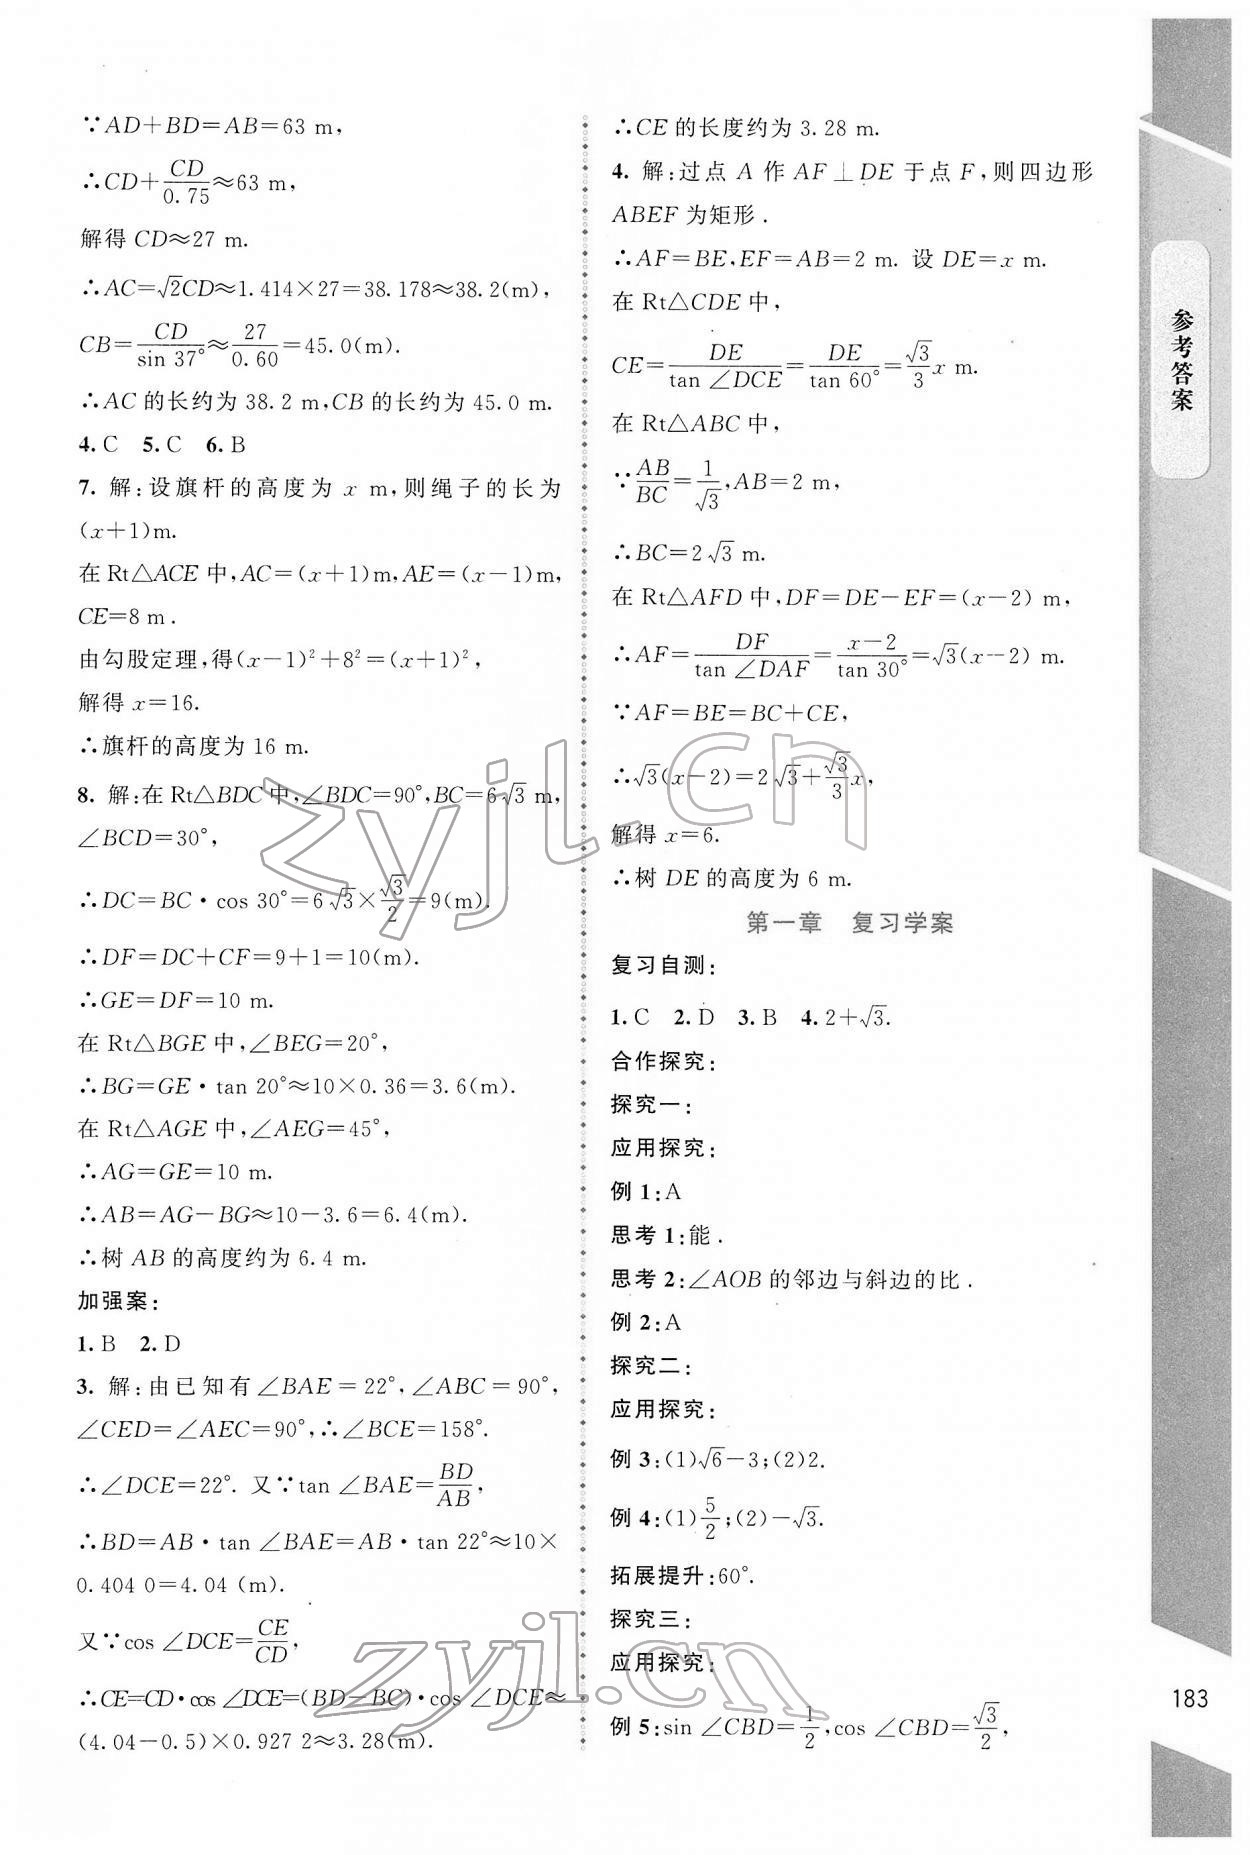 ∵AD+BD=AB=63 m,
∴CD+CD/0.75≈63 m,
解得 CD≈27 m.
∴AC=√2CD≈1.414×27=38.178≈38.2(m),
CB=CD/sin 37°≈27/0.60=45.0(m).
∴AC 的长约为 38.2 m,CB 的长约为 45.0 m.
4. C 5. C 6. B
7. 解:设旗杆的高度为 x m,则绳子的长为
(x+1)m.
在 Rt△ACE 中,AC=(x+1)m,AE=(x-1)m,
CE=8 m.
由勾股定理,得(x-1)²+8²=(x+1)²,
解得 x=16.
∴旗杆的高度为 16 m.
8. 解:在 Rt△BDC 中,∠BDC=90°,BC=6√3 m,
∠BCD=30°,
∴DC=BC·cos 30°=6√3×√3/2=9(m).
∴DF=DC+CF=9+1=10(m).
∴GE=DF=10 m.
在 Rt△BGE 中,∠BEG=20°,
∴BG=GE·tan 20°≈10×0.36=3.6(m).
在 Rt△AGE 中,∠AEG=45°,
∴AG=GE=10 m.
∴AB=AG-BG≈10-3.6=6.4(m).
∴树 AB 的高度约为 6.4 m.
加强案:
1. B 2. D
3. 解:由已知有∠BAE=22°,∠ABC=90°,
∠CED=∠AEC=90°,∴∠BCE=158°.
∴∠DCE=22°. 又∵tan ∠BAE=BD/AB,
∴BD=AB·tan ∠BAE=AB·tan 22°≈10×
0.404 0=4.04 (m).
又∵cos ∠DCE=CE/CD,
∴CE=CD·cos ∠DCE=(BD-BC)·cos ∠DCE≈
(4.04-0.5)×0.927 2≈3.28(m).
∴CE 的长度约为 3.28 m.
4. 解:过点 A 作 AF⊥DE 于点 F,则四边形
ABEF 为矩形.
∴AF=BE,EF=AB=2 m. 设 DE=x m.
在 Rt△CDE 中,
CE=DE/tan ∠DCE=DE/tan 60°=√3/3 x m.
在 Rt△ABC 中,
∵AB/BC=1/√3,AB=2 m,
∴BC=2√3 m.
在 Rt△AFD 中,DF=DE-EF=(x-2) m,
∴AF=DF/tan ∠DAF=x-2/tan 30°=√3(x-2) m.
∵AF=BE=BC+CE,
∴√3(x-2)=2√3+√3/3 x,
解得 x=6.
∴树 DE 的高度为 6 m.
第一章 复习学案
复习自测:
1. C 2. D 3. B 4. 2+√3.
合作探究:
探究一:
应用探究:
例 1:A
思考 1:能.
思考 2:∠AOB 的邻边与斜边的比.
例 2:A
探究二:
应用探究:
例 3:(1)√6-3;(2)2.
例 4:(1)5/2;(2)-√3.
拓展提升:60°.
探究三:
应用探究:
例 5:sin ∠CBD=1/2,cos ∠CBD=√3/2,
参考答案
183
zyjl.cn
zyjl.cn